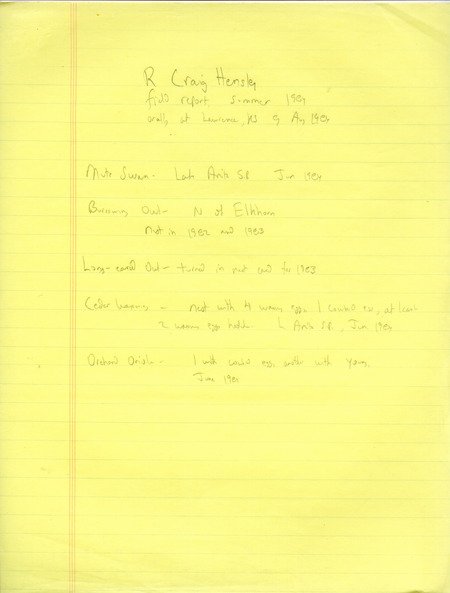 R Craig Hensley
field report summer 1984
orally at Lawrence, KS 9 Aug 1984
Mute Swan - Lake Anita S.P. Jun 1984
Burrowing Owl - N of Elkhorn
nest in 1982 and 1983
Long-eared Owl - turned in nest card for 1983
Cedar Waxwing - nest with 4 waxwing eggs 1 cowbird egg, at least
2 waxwing eggs hatch. L Anita S.P., Jun 1984
Orchard Oriole - 1 with cowbird egg, another with young,
June 1984